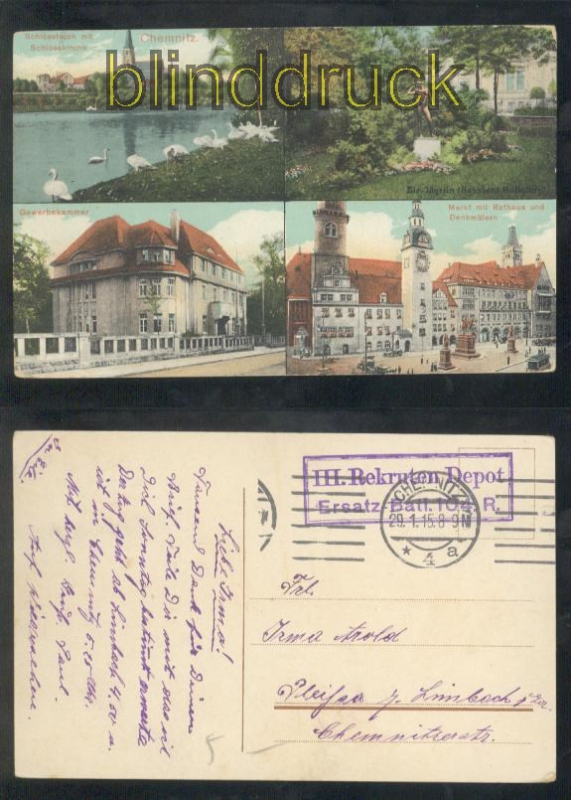 Schlossteich mit
Schlosskirche
Chemnitz.
blinddruck
Die Jägerin
Gewerbekammer
Markt mit Rathaus und
Denkmälern
III. Rekruten-Depot
Ersatz-Batl. 104. R.
CHEMNITZ
29.1.15. 8-9 N
* 4 a
Frl.
Irma Arold
Pleißa b. Limbach i/Sa
Chemnitzerstr.
Liebe Irma!
Tausend Dank für Deinen
Brief. Teile Dir mit dass ich
Dich Sonntag bestimmt erwarte
Der Zug geht ab Limbach 4.00 u.
ist in Chemnitz 5.15 Uhr.
Mit herzl. Gruß Paul
Auf Wiedersehen.